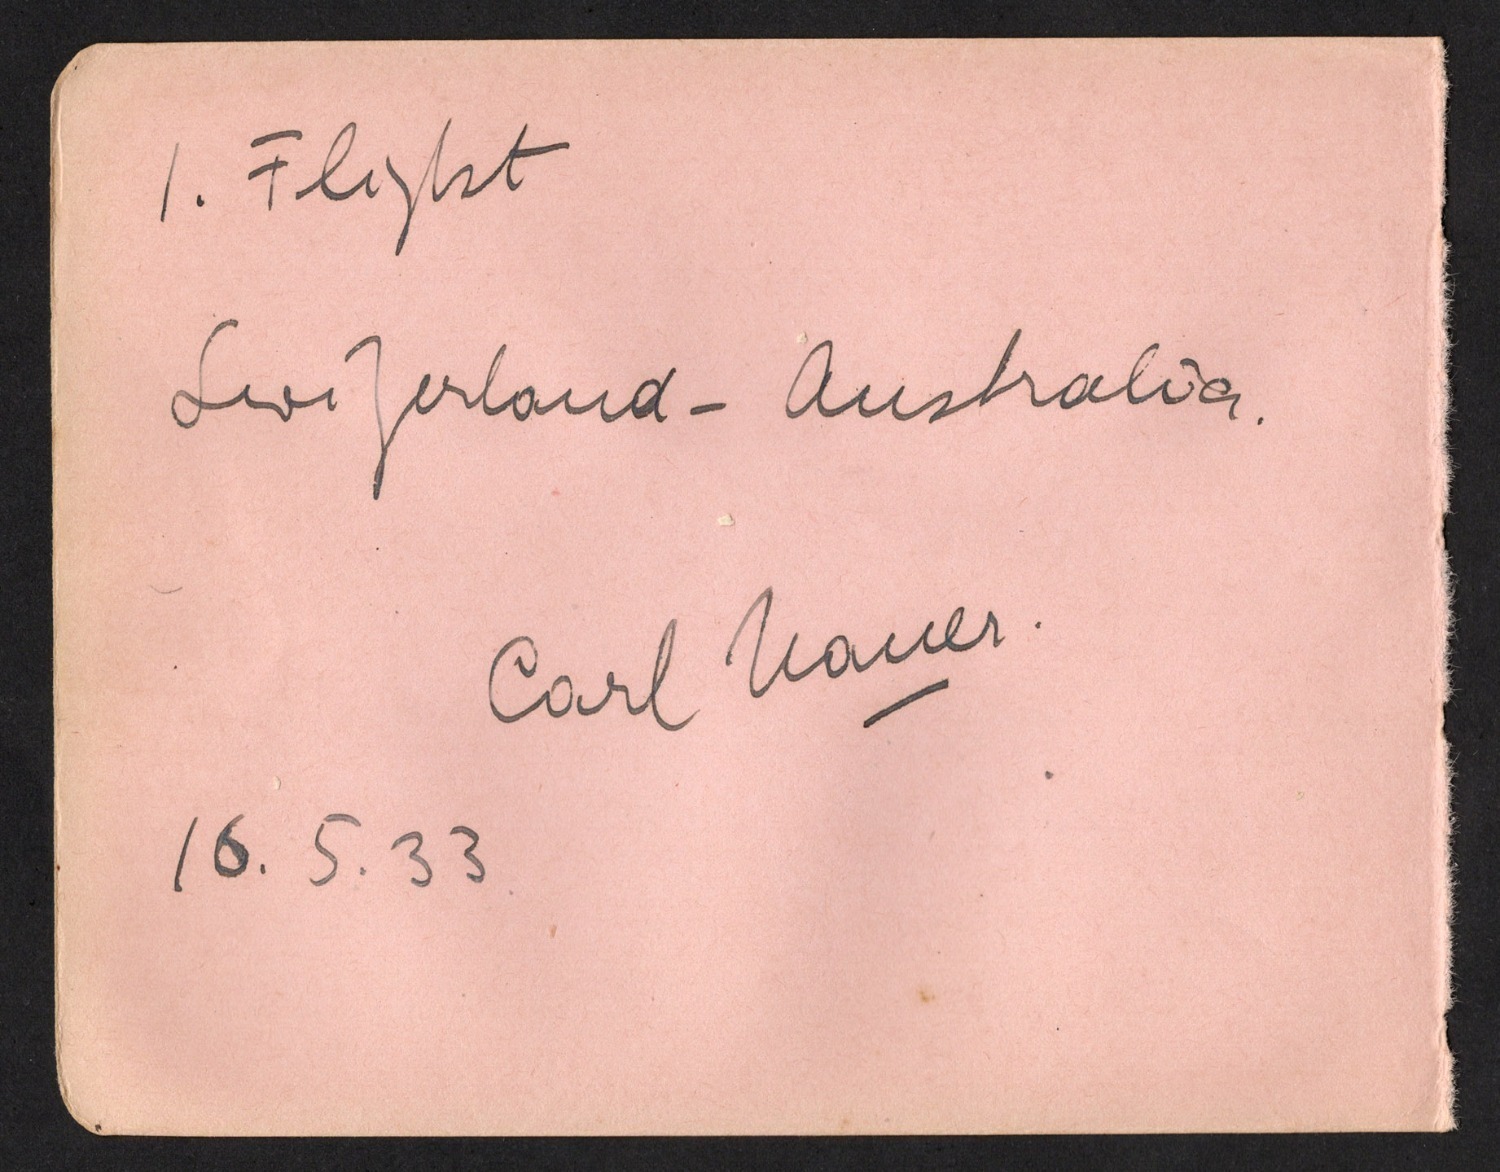 1. Flight
Switzerland - Australia.
Carl Nauer.
16. 5. 33.